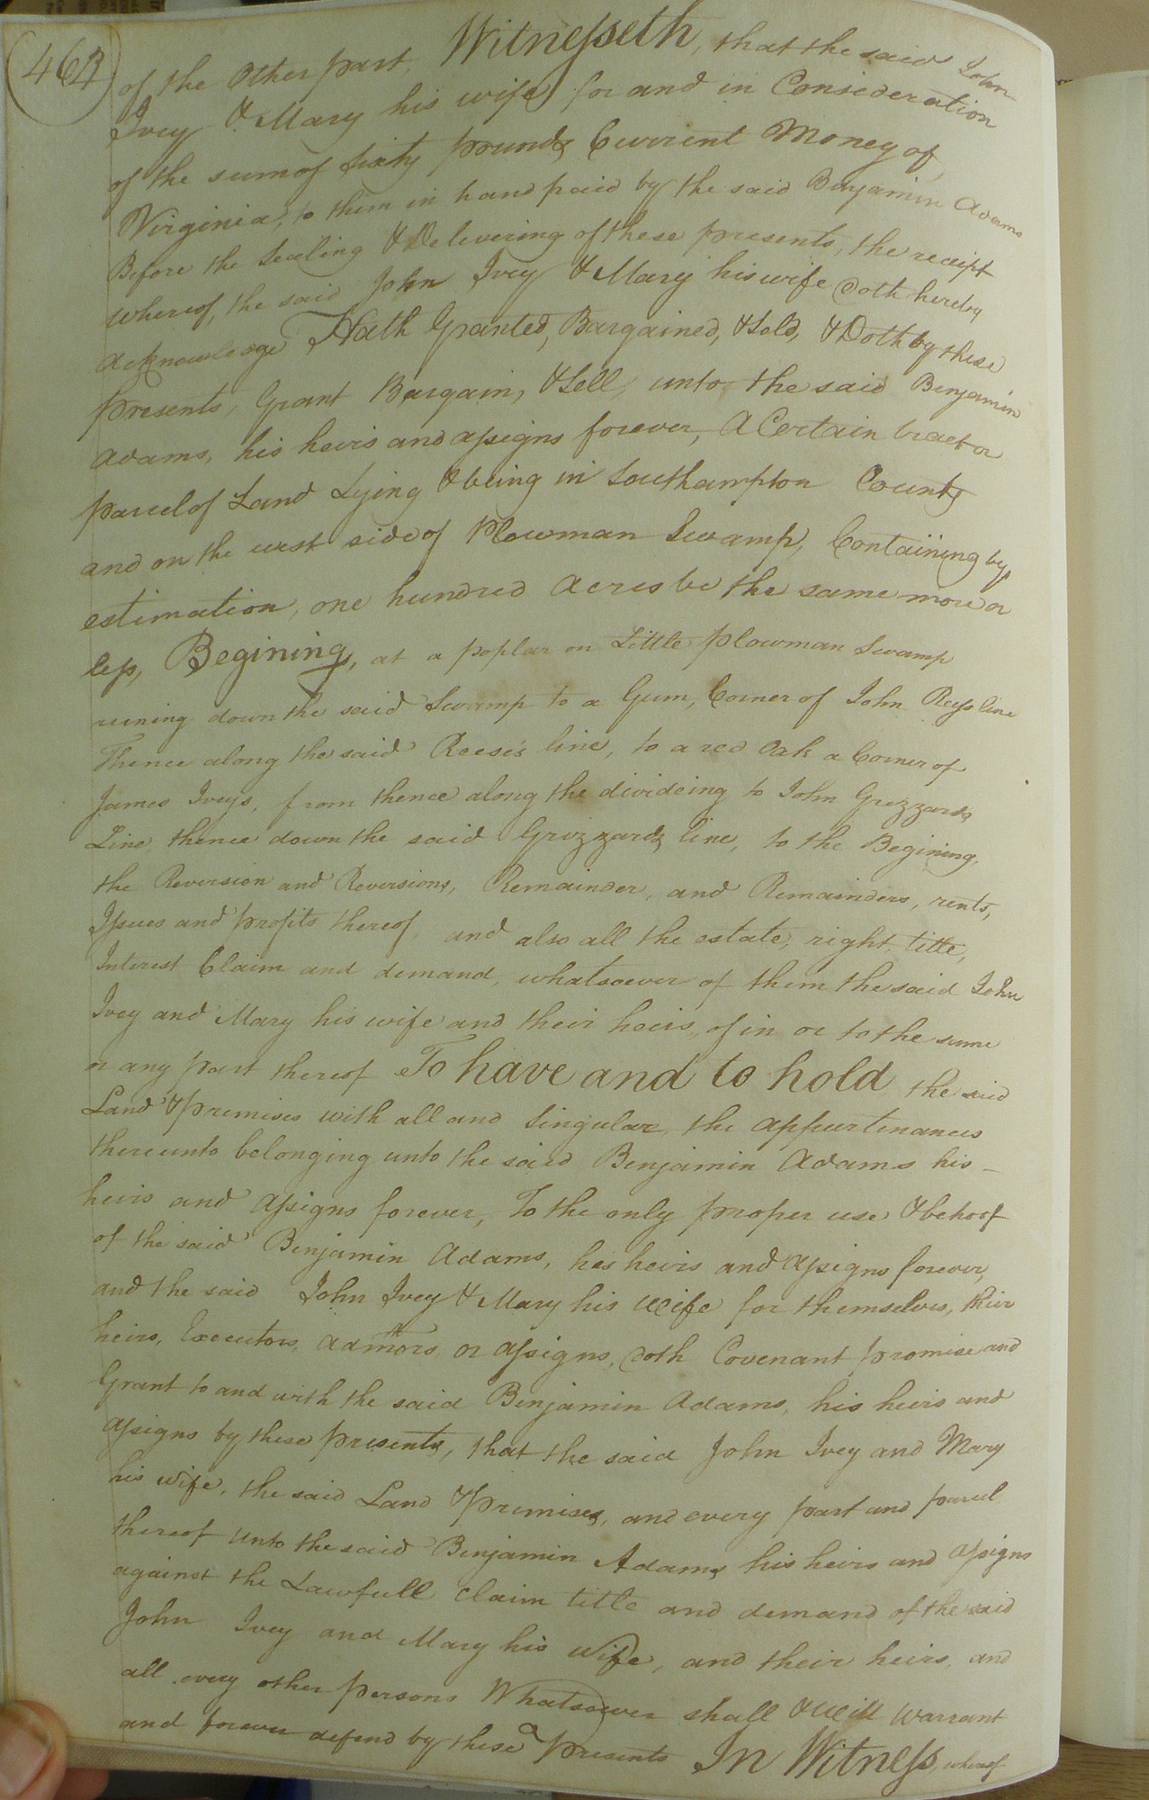 463
of the Other part. Witnesseth, that the said John
Ivey & Mary his wife for and in Consideration
of the sum of Sixty pounds Current Money of
Virginia, to them in hand paid by the said Benjamin Adams
Before the Sealing & Delivering of these presents, the receipt
whereof, the said John Ivey & Mary his wife doth hereby
acknowledge Hath Granted, Bargained, & Sold, & Doth by these
presents, Grant Bargain, & Sell, unto the said Benjamin
Adams, his heirs and assigns forever, A Certain tract or
parcel of Land Lying & being in Southampton County
and on the west side of Plowman Swamp, Containing by
estimation, one hundred Acres be the same more or
less, Begining, at a poplar on Little Plowman Swamp
runing down the said Swamp to a Gum, Corner of John Reese line
Thence along the said Reese's line, to a red Oak a Corner of
James Iveys, from thence along the divideing to John Grizzards
Line thence down the said Grizzards line, to the Begining,
the Reversion and Reversions, Remainder, and Remainders, rents,
Issues and profits thereof, and also all the estate, right, title,
Interest Claim and demand, whatsoever of them the said John
Ivey and Mary his wife and their heirs, of in or to the same
or any part thereof To have and to hold the said
Land & Premises with all and Singular, the appurtenances
thereunto belonging unto the said Benjamin Adams his —
heirs and assigns forever, To the only proper use & behoof
of the said Benjamin Adams, his heirs and assigns forever,
and the said John Ivey & Mary his wife for themselves, their
heirs, Executors, Admors, or assigns, doth Covenant promise and
Grant to and with the said Benjamin Adams, his heirs and
assigns by these presents, that the said John Ivey and Mary
his wife, the said Land & Premises, and every part and parcel
thereof unto the said Benjamin Adams his heirs and assigns
against the Lawfull claim title and demand of the said
John Ivey and Mary his wife, and their heirs, and
all every other persons Whatsoever shall & will Warrant
and forever defend by these presents In Witness, whereof